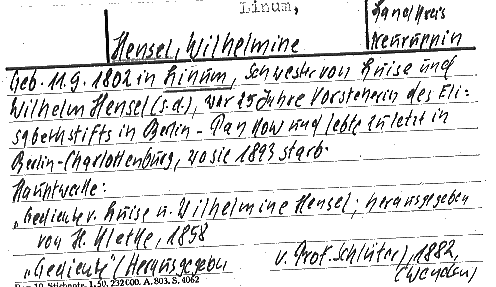 Linum,
Landkreis
Neuruppin
Hensel, Wilhelmine
Geb. 11.9. 1802 in Linum, Schwester von Luise und
Wilhelm Hensel (s.d.), war 25 Jahre Vorsteherin des Eli-
sabethstifts in Berlin-Pankow und lebte zuletzt in
Berlin-Charlottenburg, wo sie 1893 starb.
Hauptwerke:
"Gedichte v. Luise u. Wilhelmine Hensel; herausgegeben
von H. Kletke, 1858
"Gedichte" (Herausgegeben v. Prof. Schlüter), 1882,
10. Stichnote. 1. 50. 232000. A. 803. S. 4062